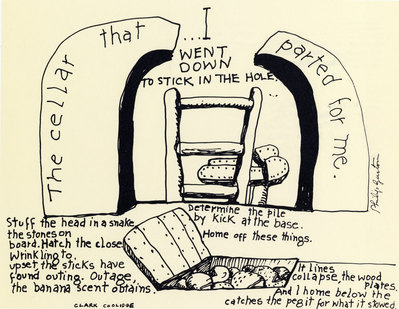 The cellar that
...I
WENT
DOWN
TO STICK IN THE HOLE,
parted for me.
Philip Guston
Determine the pile
by kick at the base.
Home off these things.
Stuff the head in a snake
the stones on
board. Hatch the close
Wrinkling to.
upset, the sticks have
found outing. Outage,
the banana scent obtains.
It lines
collapse, the wood
plates.
And I home below the
catches the pegit for what it stowed.
CLARK COOLIDGE